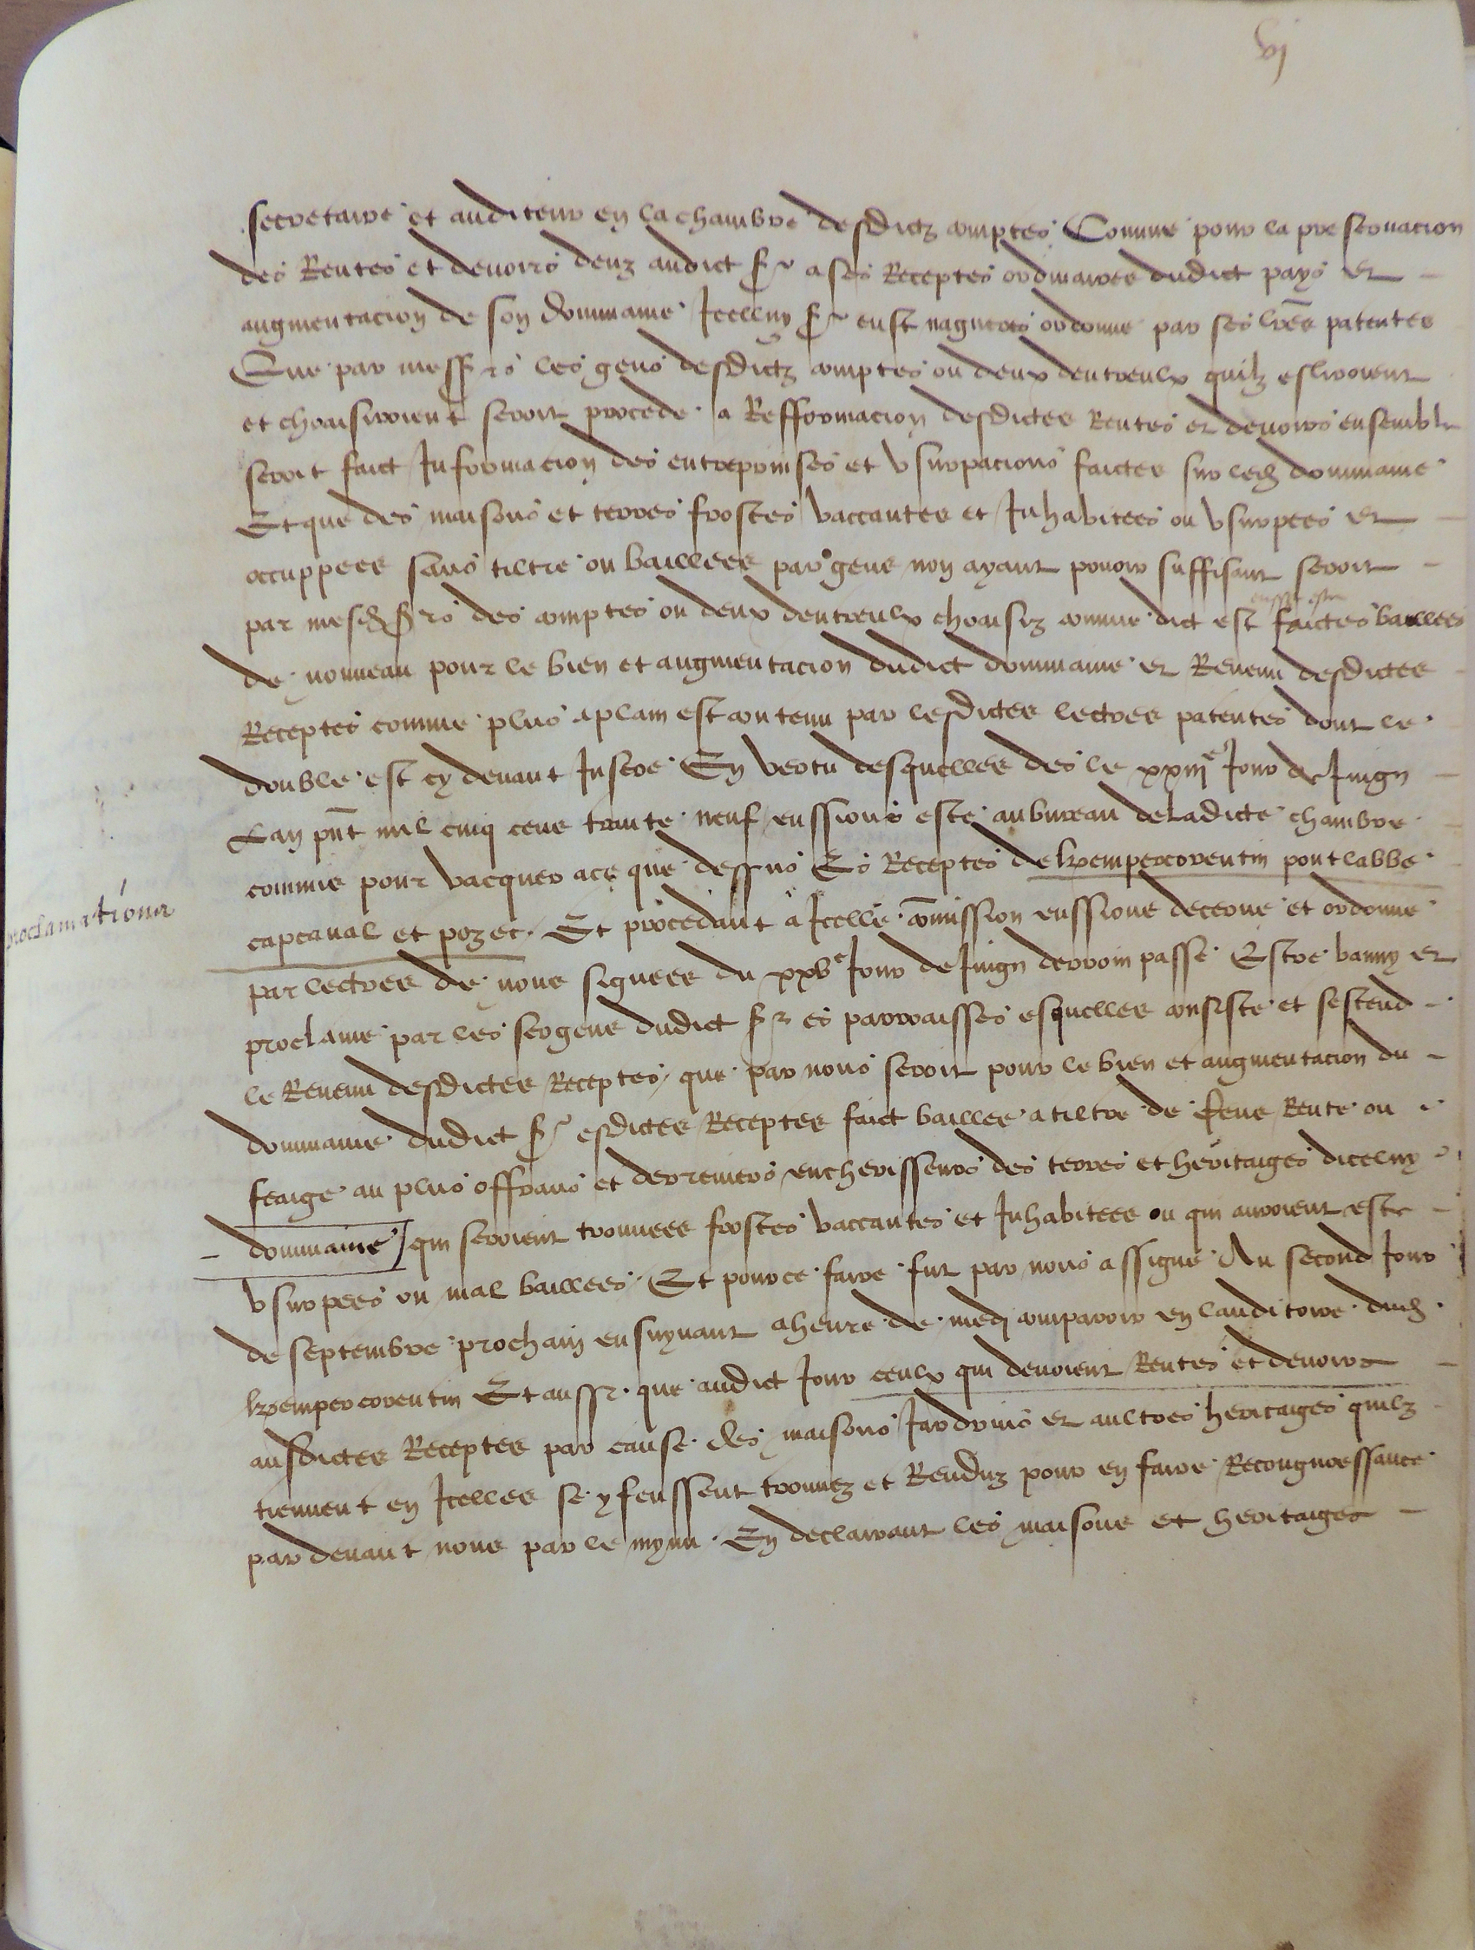 vj
secretaire et auditeur en la chambre desdictz comptes Comme pour la preservacion
des Rentes et devoirs deuz audict sr a ses Receptes ordinaires dudict pays et
augmentacion de son dommaine Icelluy sr eust nagueres ordonne par ses lres patentes
Que par messrs les gens desdictz comptes ou deux dentreulx quilz esliroient
et choaisiroient seroit procede a Refformacion desdictes Rentes et devoirs ensemble
seroit faict Informacion des entreprinses et usurpacions faictes sur led dommaine
Et que des maisons et terres frostes vaccantes et Inhabitees ou usurpees et
occuppees sans tiltre ou baillees par gens non ayant povoir suffisant seroit
eussent este
par mesd srs des comptes ou deux dentreulx choaisiz comme dict est faictes baillees
de nouveau pour le bien et augmentacion dudict dommaine et Revenu desdictes
Receptes comme plus aplain est contenu par lesdictes lectres patentes dont le
double est cy devant Insere En vertu desquelles des le xxiije Jour de Juign
Lan pnt mil cinq cens trante neuf eussions este au bureau de Ladicte chambre
commis pour vacquer ace que dessus Es Receptes de kempercorentin pontlabbe
capcaval et pozec. Et procedant a Icelle comission eussions decerne et ordonne
proclamations
par lectres de nous signees du xxve Jour de Juign derroin passe Estre banny et
proclame par les sergens dudict sr es parroaisses esquelles consiste et sestend
le Revenu desdictes Receptes, que par nous seroit pour le bien et augmentacion du
dommaine dudict sr esdictes Receptes faict baillee a tiltre de cens Rente ou
feaige au plus offrans et derreniers encherisseurs des terres et heritaiges dicelluy
dommaine qui seroient trouvees frostes vaccantes et Inhabitees ou qui auroient este
usurpees ou mal baillees. Et pour ce faire fut par nous assigne Au second Jour
de septembre prochain ensuyvant a heure de medi comparoir en lauditoire dud
kempercorentin Et aussi que audict Jour ceulx qui devoient Rentes et devoirs
ausdictes Receptes par cause des maisons Jardrins et aultres heritaiges quilz
tiennent en Icelles se y feussent trouvez et Renduz pour en faire Recongnoessance
par devant nous par le mynu. En declairant les maisons et heritaiges